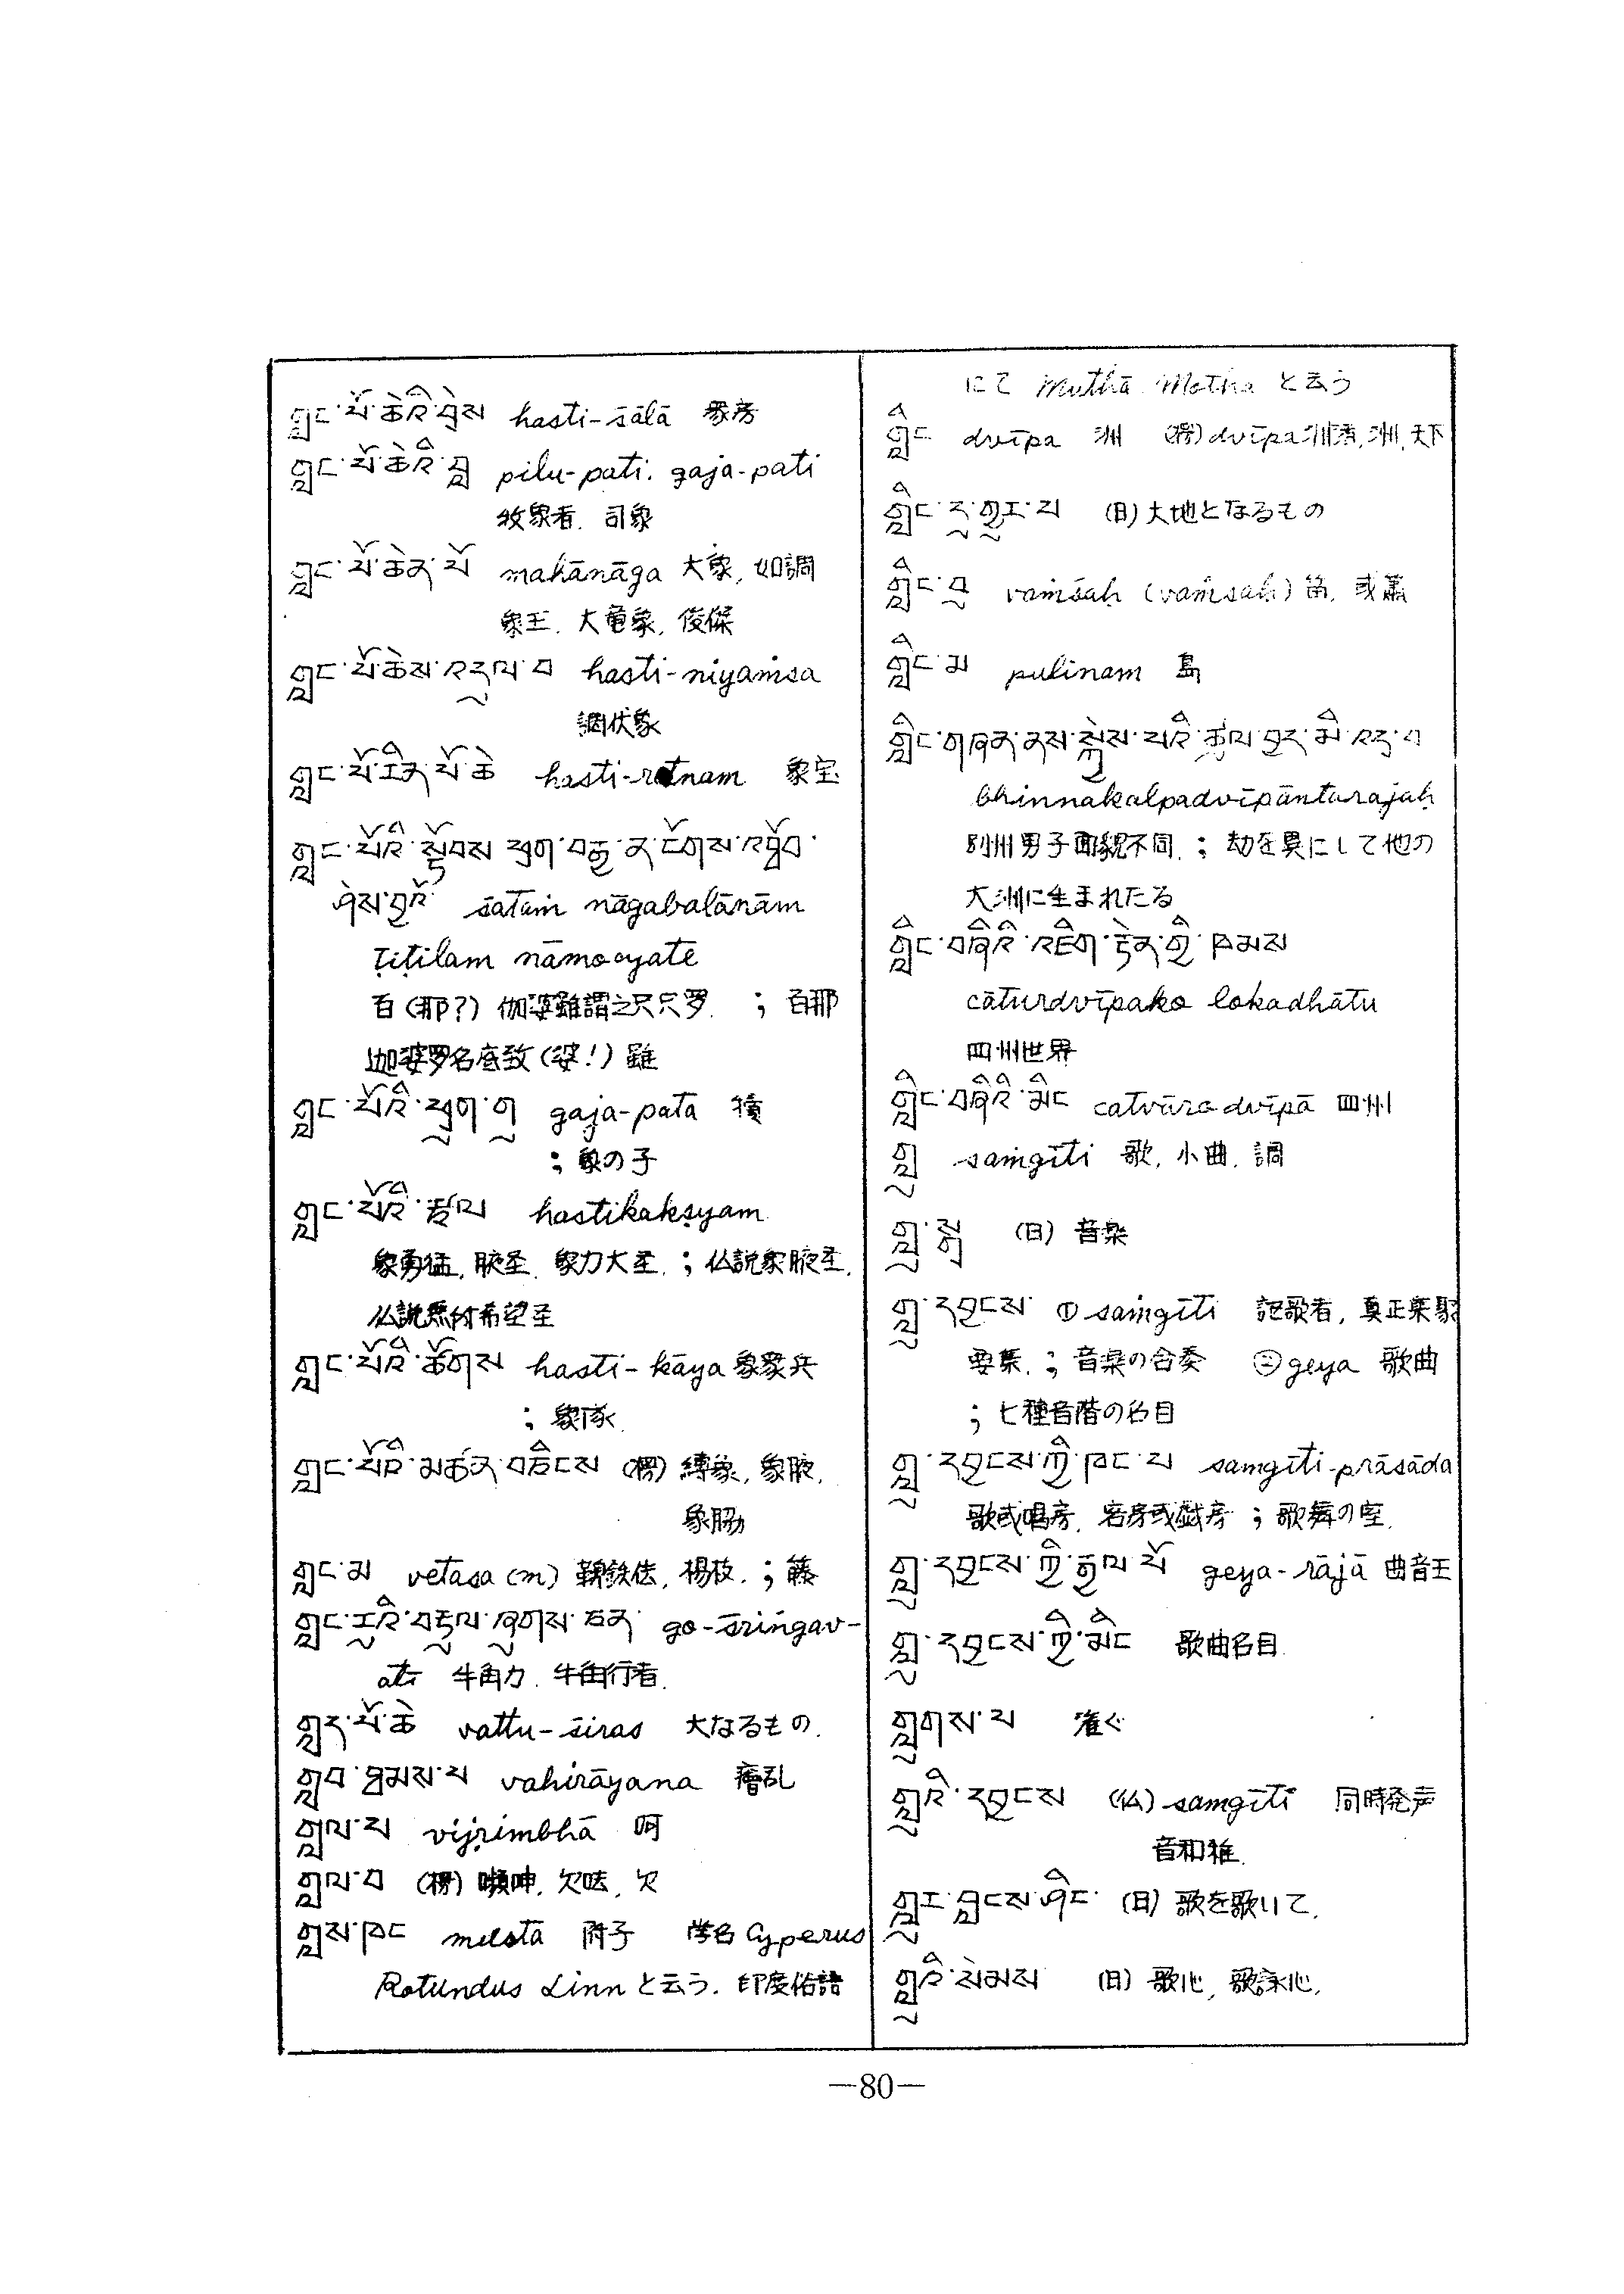 གླང་པོ་ཆེའི་ hasti-śālā 象房
གླང་པོ་ཆེའི་བླ pilu-pati. gaja-pati
牧象者. 司象
གླང་པོ་ཆེན་པོ mahānāga 大象, 如調
象王. 大竜象. 俊傑
གླང་པོ་ཆེས་འདུལ་བ hasti-niyaṁsa
調伏象
གླང་པོ་རིན་པོ་ཆེ hasti-ratnam 象宝
གླང་པོའི་སྟོབས་ཕྲག་བརྒྱ་ན་
ཞེས་བྱའོ śataṁ nāgabalānām
Ṭiṭilam nāmocyate
百(那?) 伽婆雖謂之只只罗. ; 百那
迦婆罗名底致(婆!) 雖
གླང་པོའི་ཕྲུ་གུ gaja-pata 犢
; 象の子
གླང་པོའི་རྩལ hastikakṣyam
象勇猛, 腋圣. 象力大圣. ; 仏説象腋圣.
希望圣
གླང་པོའི་ཚོགས hasti-kāya 象衆兵
; 象隊
གླང་པོའི་མཚན་ (楞) 縛象, 象腋.
象脇
གླང་མ vetasa (m) 楊枝. ; 藤
གླང་རུའི་བརྟུལ་ཞུགས་ཅན་ go-śriṅgav-
ati 牛角力. 牛角行者.
གླད་པོ་ཆེ vattu-śiras 大なるもの.
གླབ་ཐྲམས་པ vahirāyana 乱
གླལ་པ vijṛimbhā 呵
གླལ་བ (楞) 嚬呻, 欠呿, 欠
གླས་ཁང mustā 附子 学名 Cyperus
Rotundus Linn と云う. 印度俗語
にて Muthā Motha と云う
གླིང dvīpa 洲 (楞) dvīpa 洲渚, 洲, 天下
གླིང་དུ་གྱུར་པ (日) 大地となるもの
གླིང་བུ vaṁśaḥ (vaṁsaḥ) 笛. 或簫
གླིང་མ pulinam 島
གླིང་གཞན་ནས་སྐྱེས་པའི་ཚུལ་བྱད་མི་འདྲ་བ
bhinnakalpadvīpāntarajaḥ
別州男子面貌不同. ; 劫を異にして他の
大洲に生まれたる
གླིང་བཞིའི་འཇིག་རྟེན་གྱི་ཁམས
cāturdvīpako lokadhātu
四州世界
གླིང་བཞིའི་མིང catvāra dvīpā 四州
གླུ saṁgīti 歌, 小曲. 調
གླུ་སྣ (日) 音楽
གླུ་དབྱངས ① saṁgīti 記歌者, 真正集聚
要集. ; 音楽の合奏 ② geya 歌曲
; 七種音階の名目
གླུ་དབྱངས་ཀྱི་ཁང་པ saṁgīti-prāsāda
歌或唱房. 客房或戯房 ; 歌舞の座.
གླུ་དབྱངས་ཀྱི་རྒྱལ་པོ geya-rājā 曲音王
གླུ་དབྱངས་ཀྱི་མིང 歌曲名目.
གླུགས་པ 潅ぐ
གླུའི་དབྱངས (仏) saṁgīti 同時発声
音和雅.
གླུར་བླངས་ཤིང་ (日) 歌を歌いて.
གླུའི་སེམས (日) 歌心, 歌詠心.
—80—